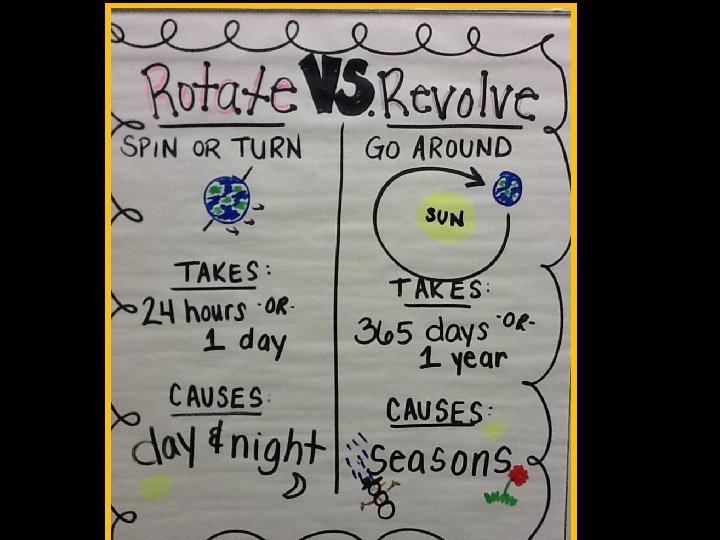 Rotate VS. Revolve
SPIN OR TURN
TAKES:
24 hours -OR-
1 day
CAUSES:
day & night
GO AROUND
SUN
TAKES:
365 days -OR-
1 year
CAUSES:
seasons